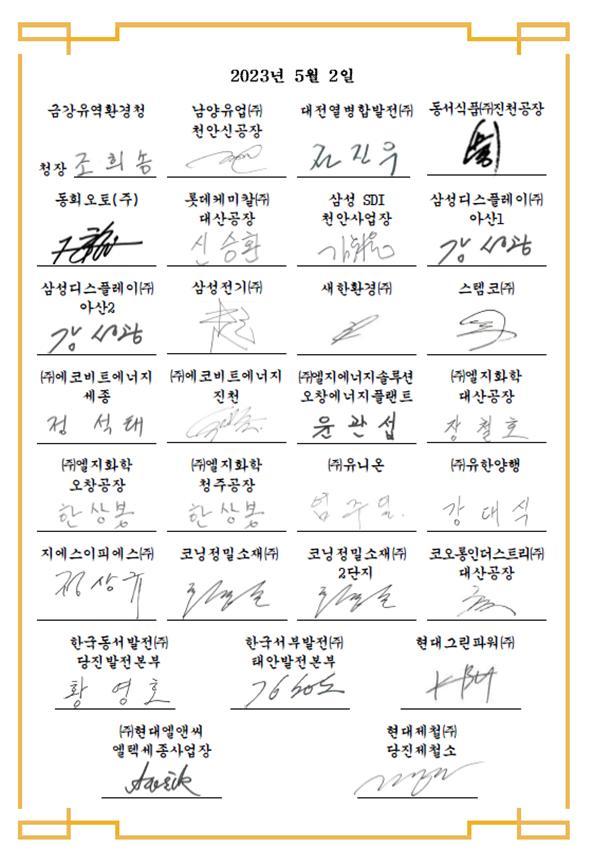 2023년 5월 2일
금강유역환경청
청장 조희송
남양유업㈜
천안신공장
대전열병합발전㈜
전진우
동서식품㈜진천공장
동희오토(주)
롯데케미칼㈜
대산공장
신승환
삼성 SDI
천안사업장
삼성디스플레이㈜
아산1
강성광
삼성디스플레이㈜
아산2
강성광
삼성전기㈜
새한환경㈜
스템코㈜
㈜에코비트에너지
세종
정석태
㈜에코비트에너지
진천
㈜엘지에너지솔루션
오창에너지플랜트
윤관섭
㈜엘지화학
대산공장
장철호
㈜엘지화학
오창공장
한상봉
㈜엘지화학
청주공장
한상봉
㈜유니온
엄주열
㈜유한양행
강대식
지에스이피에스㈜
정상규
코닝정밀소재㈜
코닝정밀소재㈜
2단지
코오롱인더스트리㈜
대산공장
한국동서발전㈜
당진발전본부
황영호
한국서부발전㈜
태안발전본부
현대그린파워㈜
㈜현대엘앤씨
엘텍세종사업장
현대제철㈜
당진제철소